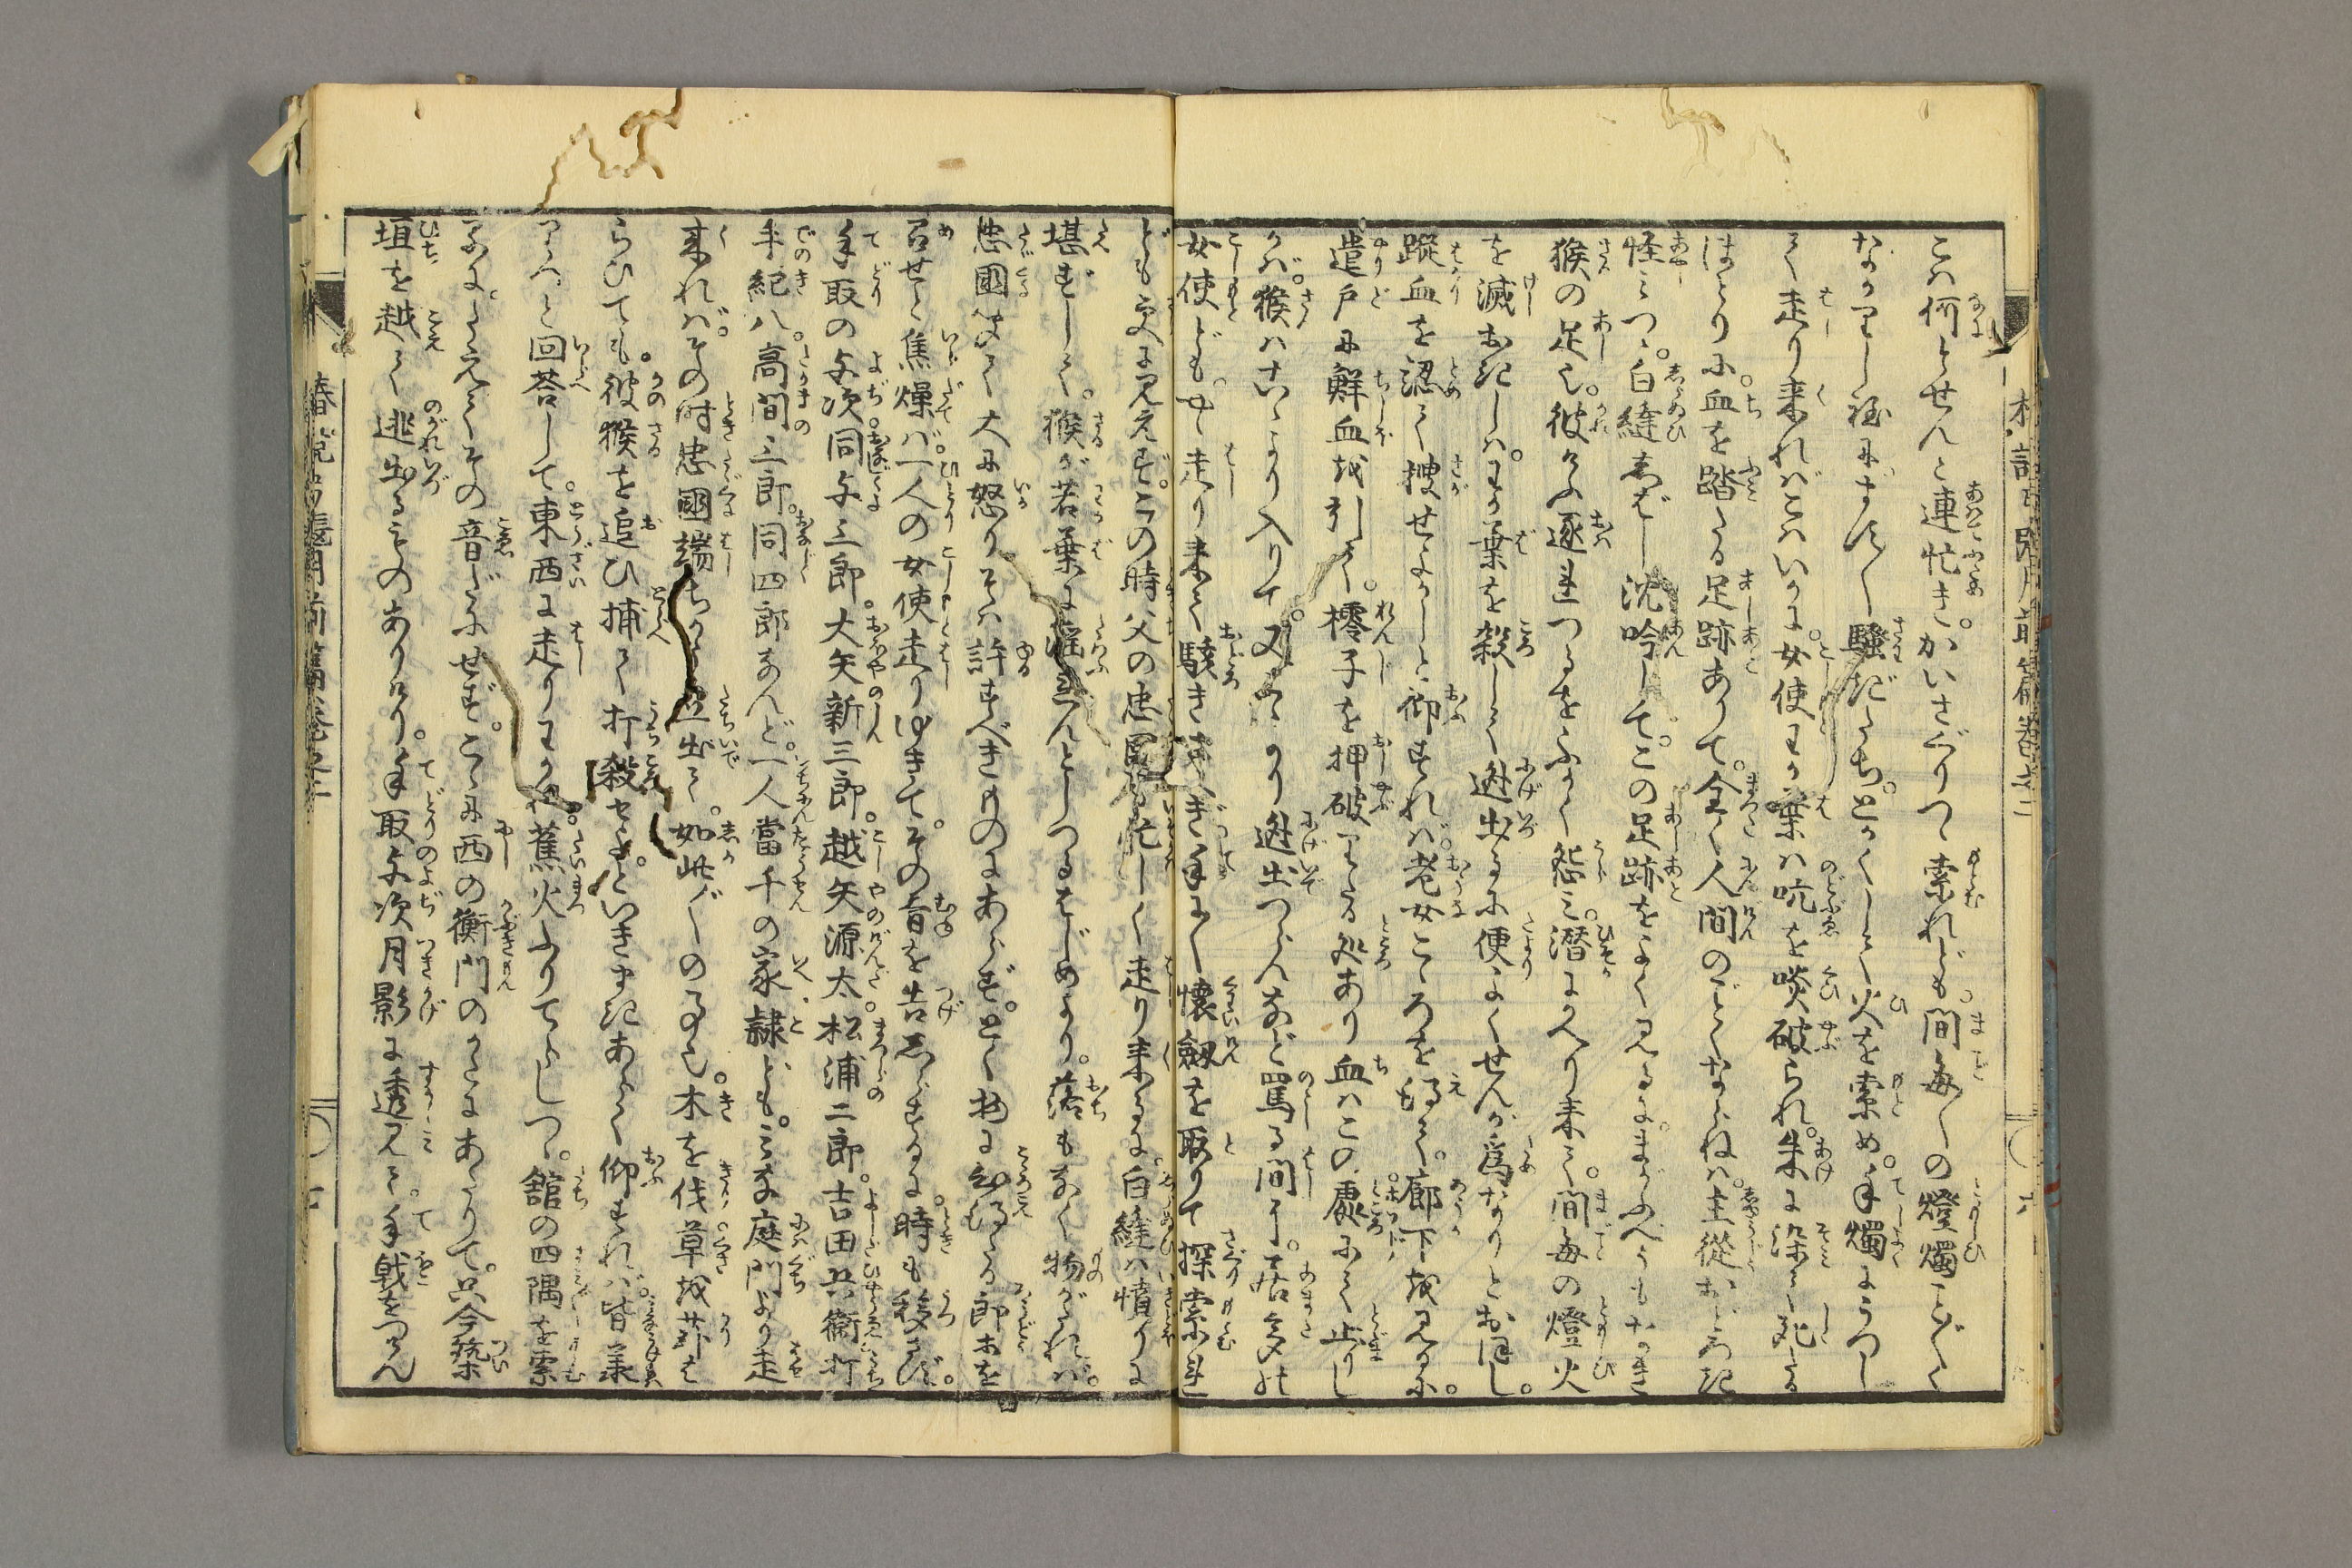 こは何とせんと連忙き。かいさぐりつゝ索れども。間毎〳〵の燈燭こと〴〵く
なかりし程に。ます〳〵騒ぎたち。とかくして火を索め。手燭にうつし
て走り来ればこはいかに。女使わか葉は吭を啖破られ。朱に染て死したる
ほとりに。血を踏たる足跡ありて。全く人間のごとくならねは。主従おどろき
怪みつゝ。白縫しばし沈吟して。この足跡をよく見るに。まがふべうもなき
猴の足也。彼けふ逐れつるをふかく怨み。潜にかへり来て。間毎の燈火
を滅おきしは。わか葉を殺して迯出るに便よくせんが為なりとおぼし。
蹤血を認て捜せよかしと仰すれば。老女こゝろを得て。廊下を見るに。
遣戸に鮮血を引て。櫺子を押破りたる処あり血はこの処にて止りし
かば。猴はこゝより入りて。又こゝより迯出つらんなど罵る間に。
女使ども。みな走り来て駭き噪ぎ手に〳〵懐劔を取りて探索れ
ども更に見えず。この時父の忠國も忙しく走り来るに。白縫は憤りに
堪ずして。猴が若葉に淫れんとしつるはじめより。落もなく物がたれば。
忠國聞て大に怒りそは許すべきものにあらず。とく物に心得たる郎等を
召せと焦燥ば。一人の女使走りゆきて。その旨を告しらするに。時も移さず。
手取の与次同与三郎。大矢新三郎。越矢源太。松浦二郎。吉田兵衛打
手紀八。高間三郎。同四郎なんど。一人當千の家隷ども。みな庭門より走
来れば。その時忠國端ちかく立出て。如此〴〵の事也。木を伐草を苅は
らひても。彼猴を追ひ捕て打殺せよ。といきまきあらく仰すれば。皆承
りぬと回荅して。東西に走りわかれ。蕉火ふりてらしつゝ。舘の四隅を索
るに。たえてその音だにせず。こゝに西の衡門のかたにあたりて。只今築
垣を越て逃出るものありけり。手取与次月影に透見て。手戟をつかん